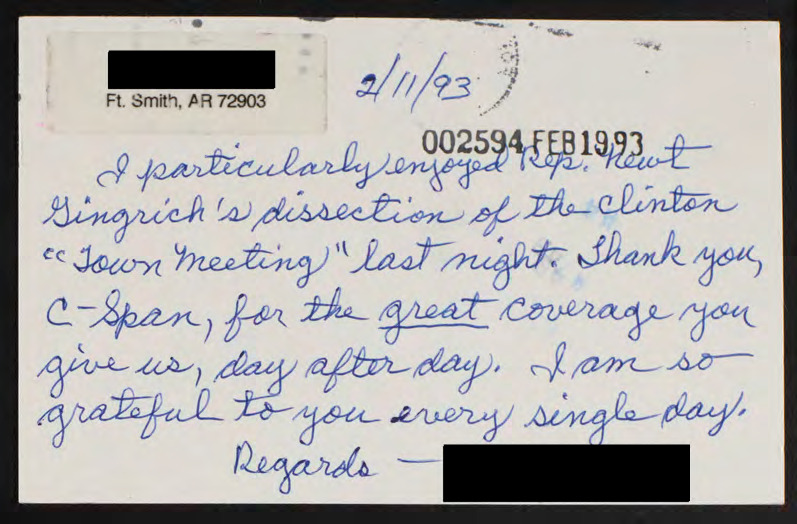 Ft. Smith, AR 72903
2/11/93
002594 FEB1993
I particularly enjoyed Rep. Newt
Gingrich's dissection of the Clinton
"Town Meeting" last night. Thank you,
C-Span, for the great coverage you
give us, day after day. I am so
grateful to you every single day.
Regards —